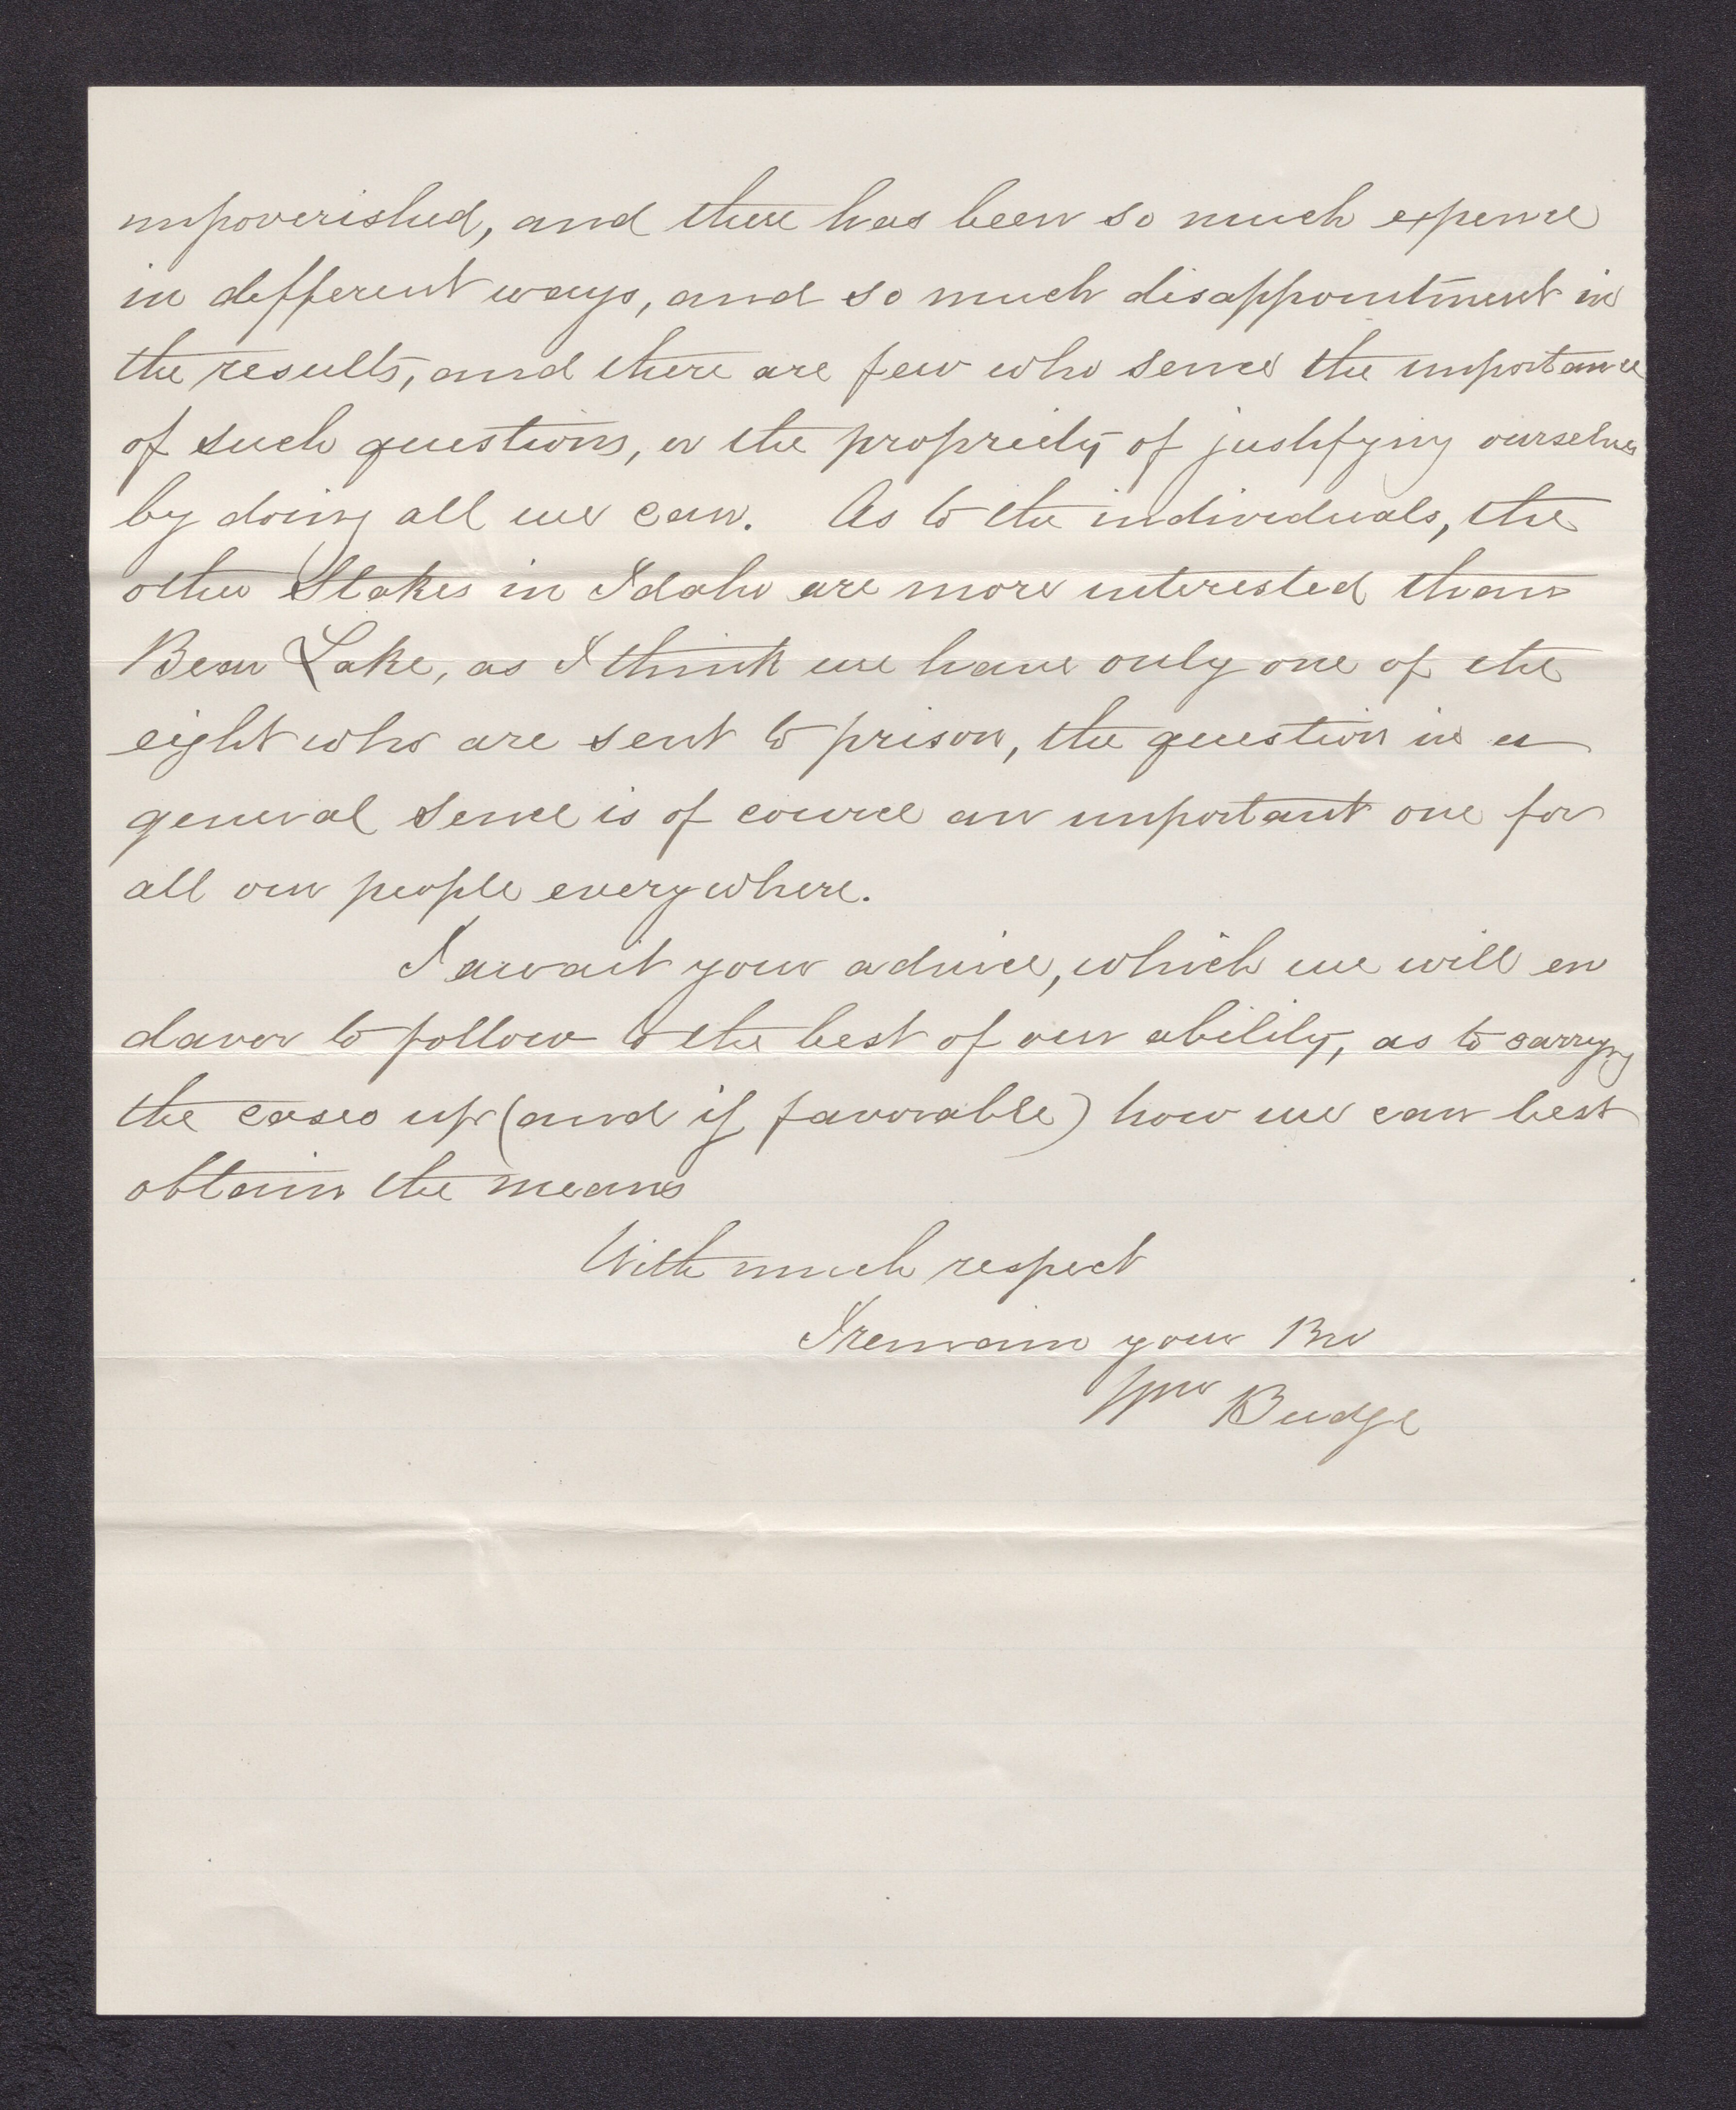 impoverished, and there has been so much expence
in defferent ways, and so much disappointment in
the results, and there are few who sence the importance
of such questions, or the propriety of justifying ourselves
by doing all we can. As to the individuals, the
other Stakes in Idaho are more interested than
Bear Lake, as I think we have only one of the
eight who are sent to prison, the question in a
general sence is of cource an important one for
all our people everywhere.
I await your advice, which we will en
davor to follow to the best of our ability, as to carrying
the cases up (and if favorable) how we can best
obtain the means
With much respect
I remain your Bro
Wm Budge